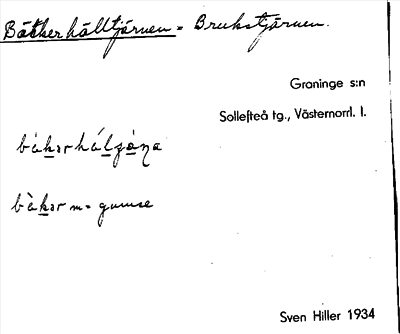 Bäckerhålltjärnen = Brukstjärnen.
Graninge s:n
Sollefteå tg., Västernorrl. l.
bàkərhálʒəṇa
bàkər m = gumse
Sven Hiller 1934